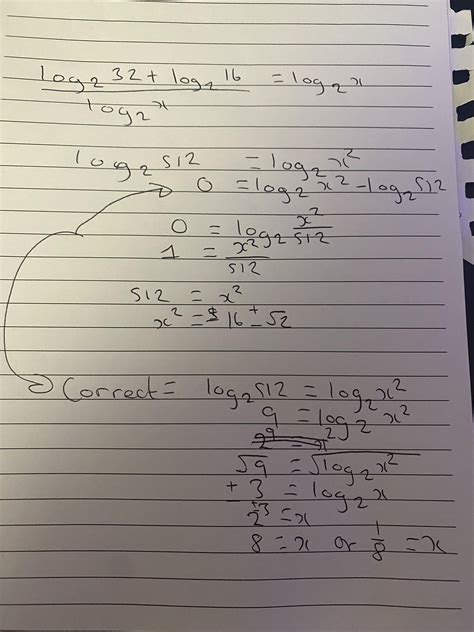 log₂32 + log₂16 = log₂x
log₂x
log₂512 = log₂x²
0 = log₂x² - log₂512
0 = log₂ x²/512
1 = x²/512
512 = x²
x² = 16 ± √2
Correct = log₂512 = log₂x²
9 = log₂x²
2⁹ = x²
√9 = √log₂x²
±3 = log₂x
2^±3 = x
8 = x or 1/8 = x